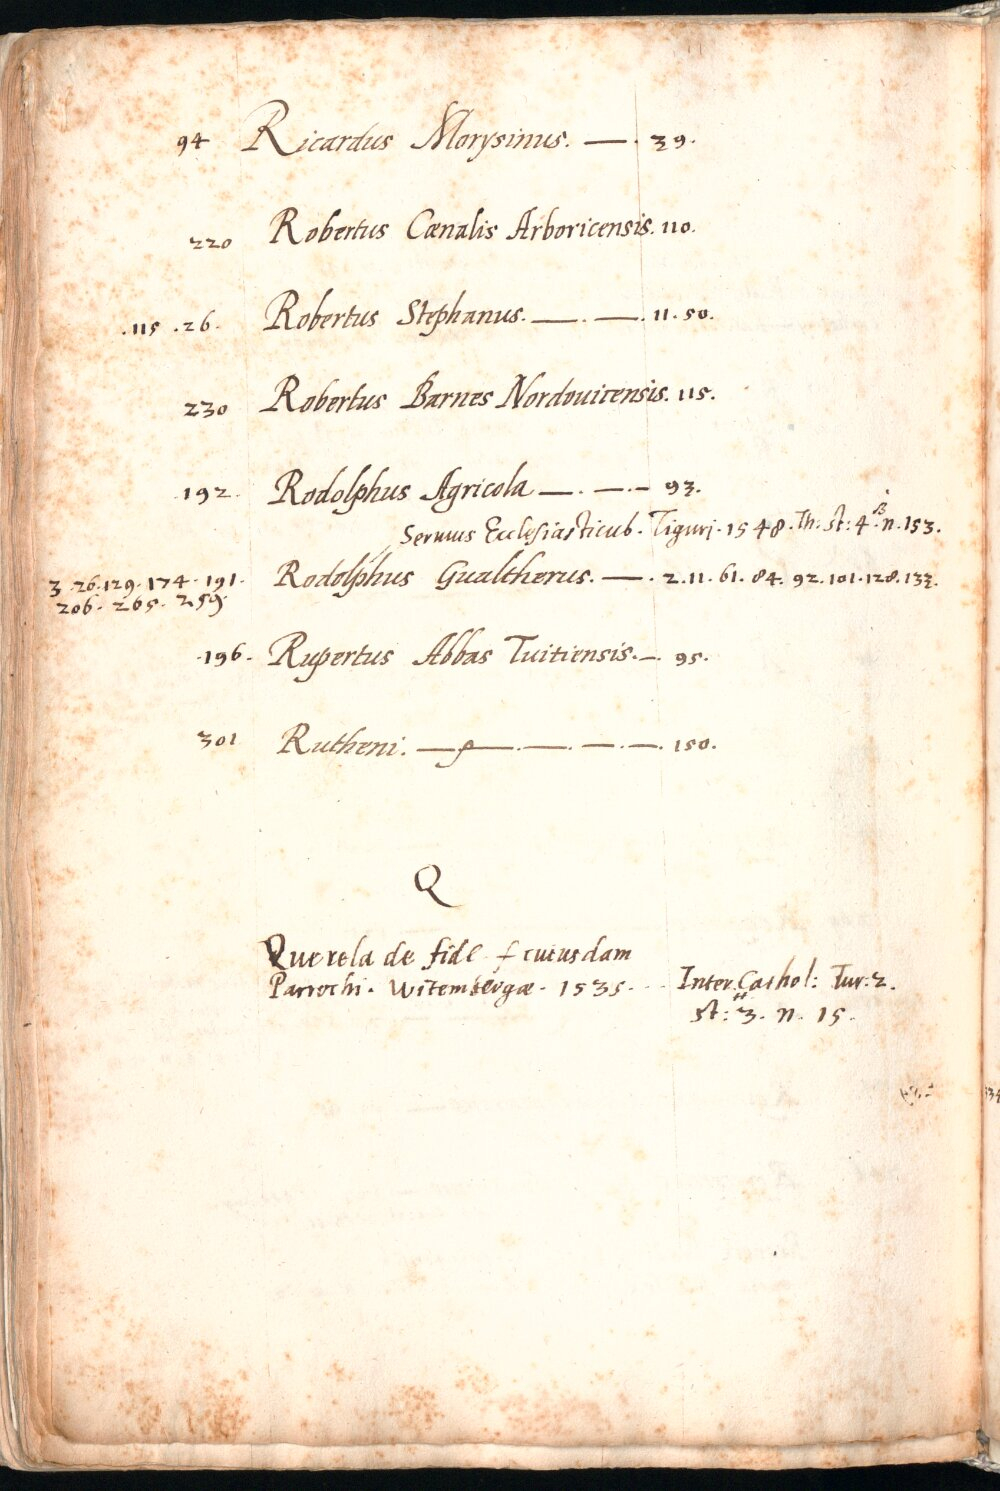 94 Ricardus Morysinus. —. 39.
220 Robertus Cœnalis Arboricensis. 110.
.115 .26. Robertus Stephanus. —. —. 11. 50.
230 Robertus Barnes Nordovvicensis. 115.
192. Rodolphus Agricola —. —.– 93.
Sermus Ecclesiasticub. Tiguri. 1548. Th: st: 4. n. 153.
3. 26. 129. 174. 191. Rodolphus Gualtherus. —. 2. 11. 61. 84. 92. 101. 128. 133.
206. 265. 259.
.196. Rupertus Abbas Tuitiensis. –. 95.
301 Rutheni. —. —. —. —. 150.
Q
Querela de fide cuiusdam
Parrochi. Witembergæ. 1535. Inter. Cathol: Tur: 2.
st: 3. n. 15.